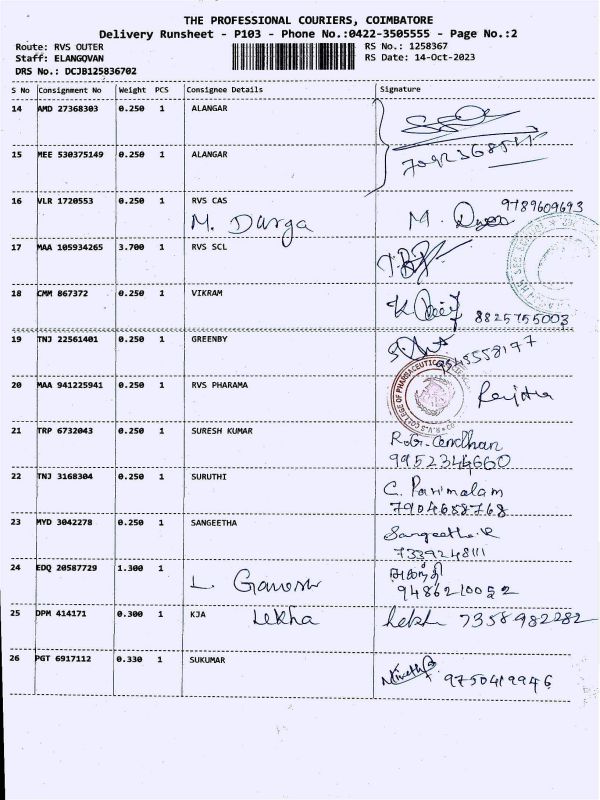 THE PROFESSIONAL COURIERS, COIMBATORE
Delivery Runsheet - P103 - Phone No.:0422-3505555 - Page No.:2
Route: RVS OUTER RS No.: 1258367
Staff: ELANGOVAN RS Date: 14-Oct-2023
DRS No.: DCJB125836702
S No Consignment No Weight PCS Consignee Details Signature
14 AMD 27368303 0.250 1 ALANGAR
15 MEE 530375149 0.250 1 ALANGAR
16 VLR 1720553 0.250 1 RVS CAS 9789609693
M. Darga M.
17 MAA 105934265 3.700 1 RVS SCL
18 CMM 867372 0.250 1 VIKRAM
8825755003
19 TNJ 22561401 0.250 1 GREENBY
20 MAA 941225941 0.250 1 RVS PHARAMA
21 TRP 6732043 0.250 1 SURESH KUMAR
9952344660
22 TNJ 3168304 0.250 1 SURUTHI
C. Parimalam
7904688768
23 MYD 3042278 0.250 1 SANGEETHA Sangeetha.R
7339248111
24 EDQ 20587729 1.300 1
L. Ganesh 9486210052
25 DPM 414171 0.300 1 KJA Lekha 7358982282
26 PGT 6917112 0.330 1 SUKUMAR
9750419946